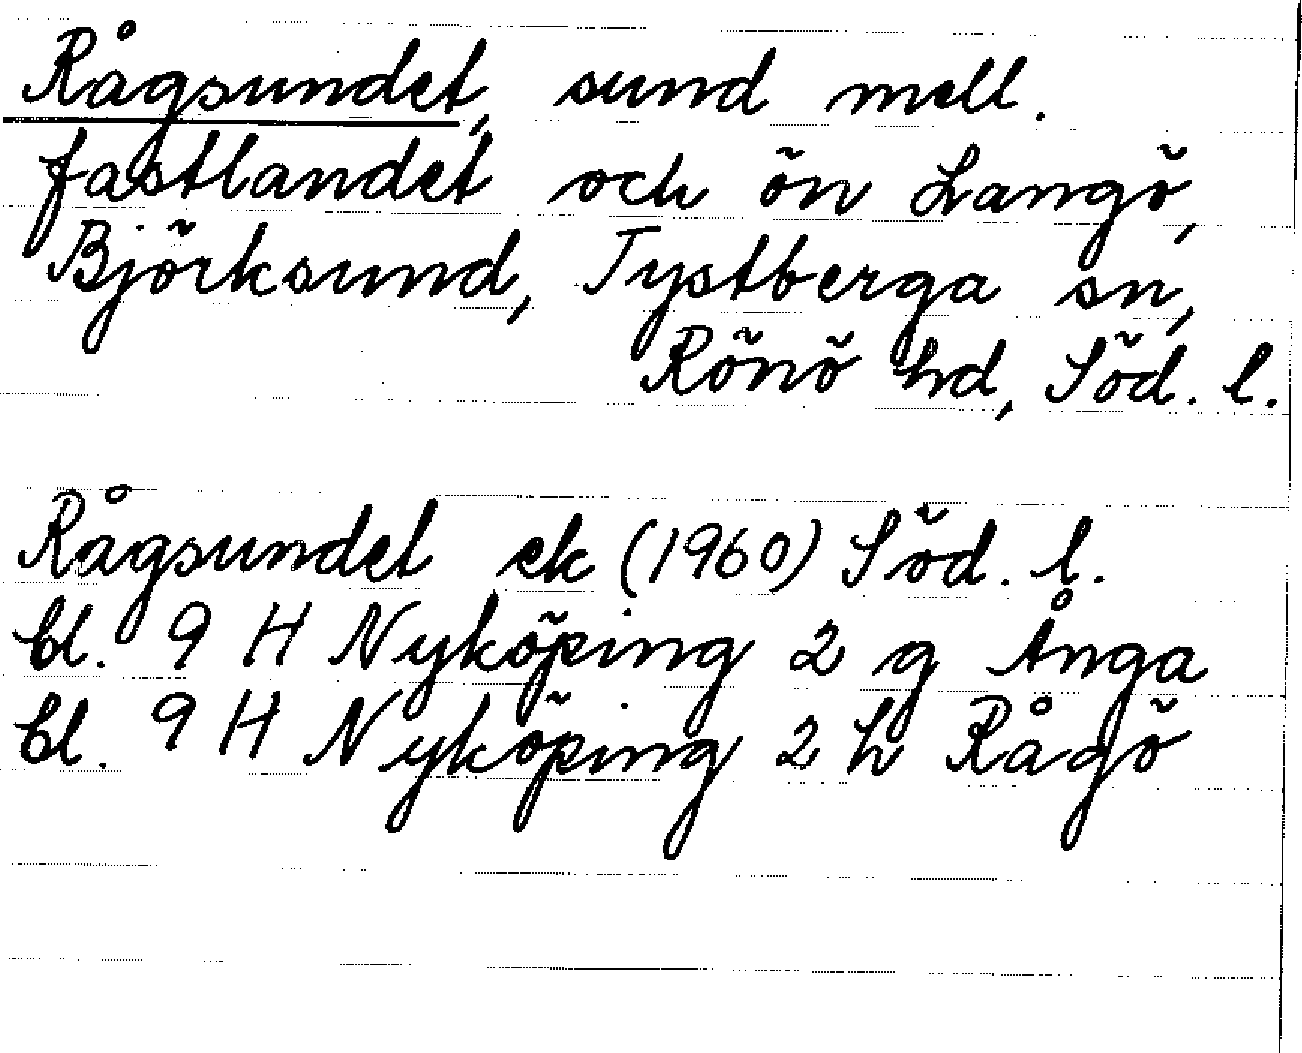 Rågsundet, sund mell.
fastlandet och ön Langö,
Björksund, Tystberga sn,
Rönö hd, Söd. l.
Rågsundet ek (1960) Söd. l.
bl. 9 H Nyköping 2 g Ånga
bl. 9 H Nyköping 2 h Rågö